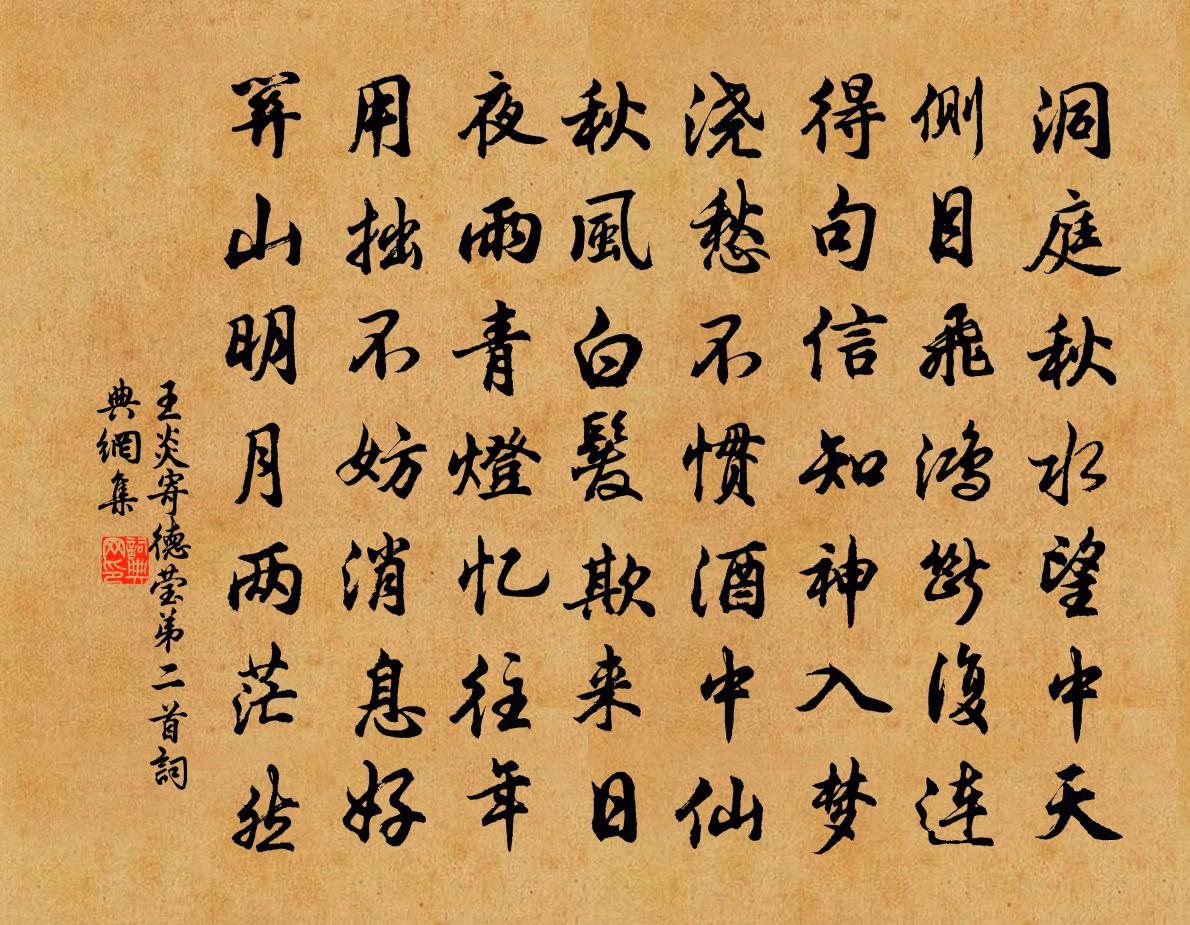 洞庭秋水望中天
侧目飛鸿断復连
得句信知神入梦
浇愁不惯酒中仙
秋風白髮欺来日
夜雨青燈忆往年
用拙不妨消息好
羿山明月两茫然
王炎寄德莹弟二首詞
典網集
詞典
网印